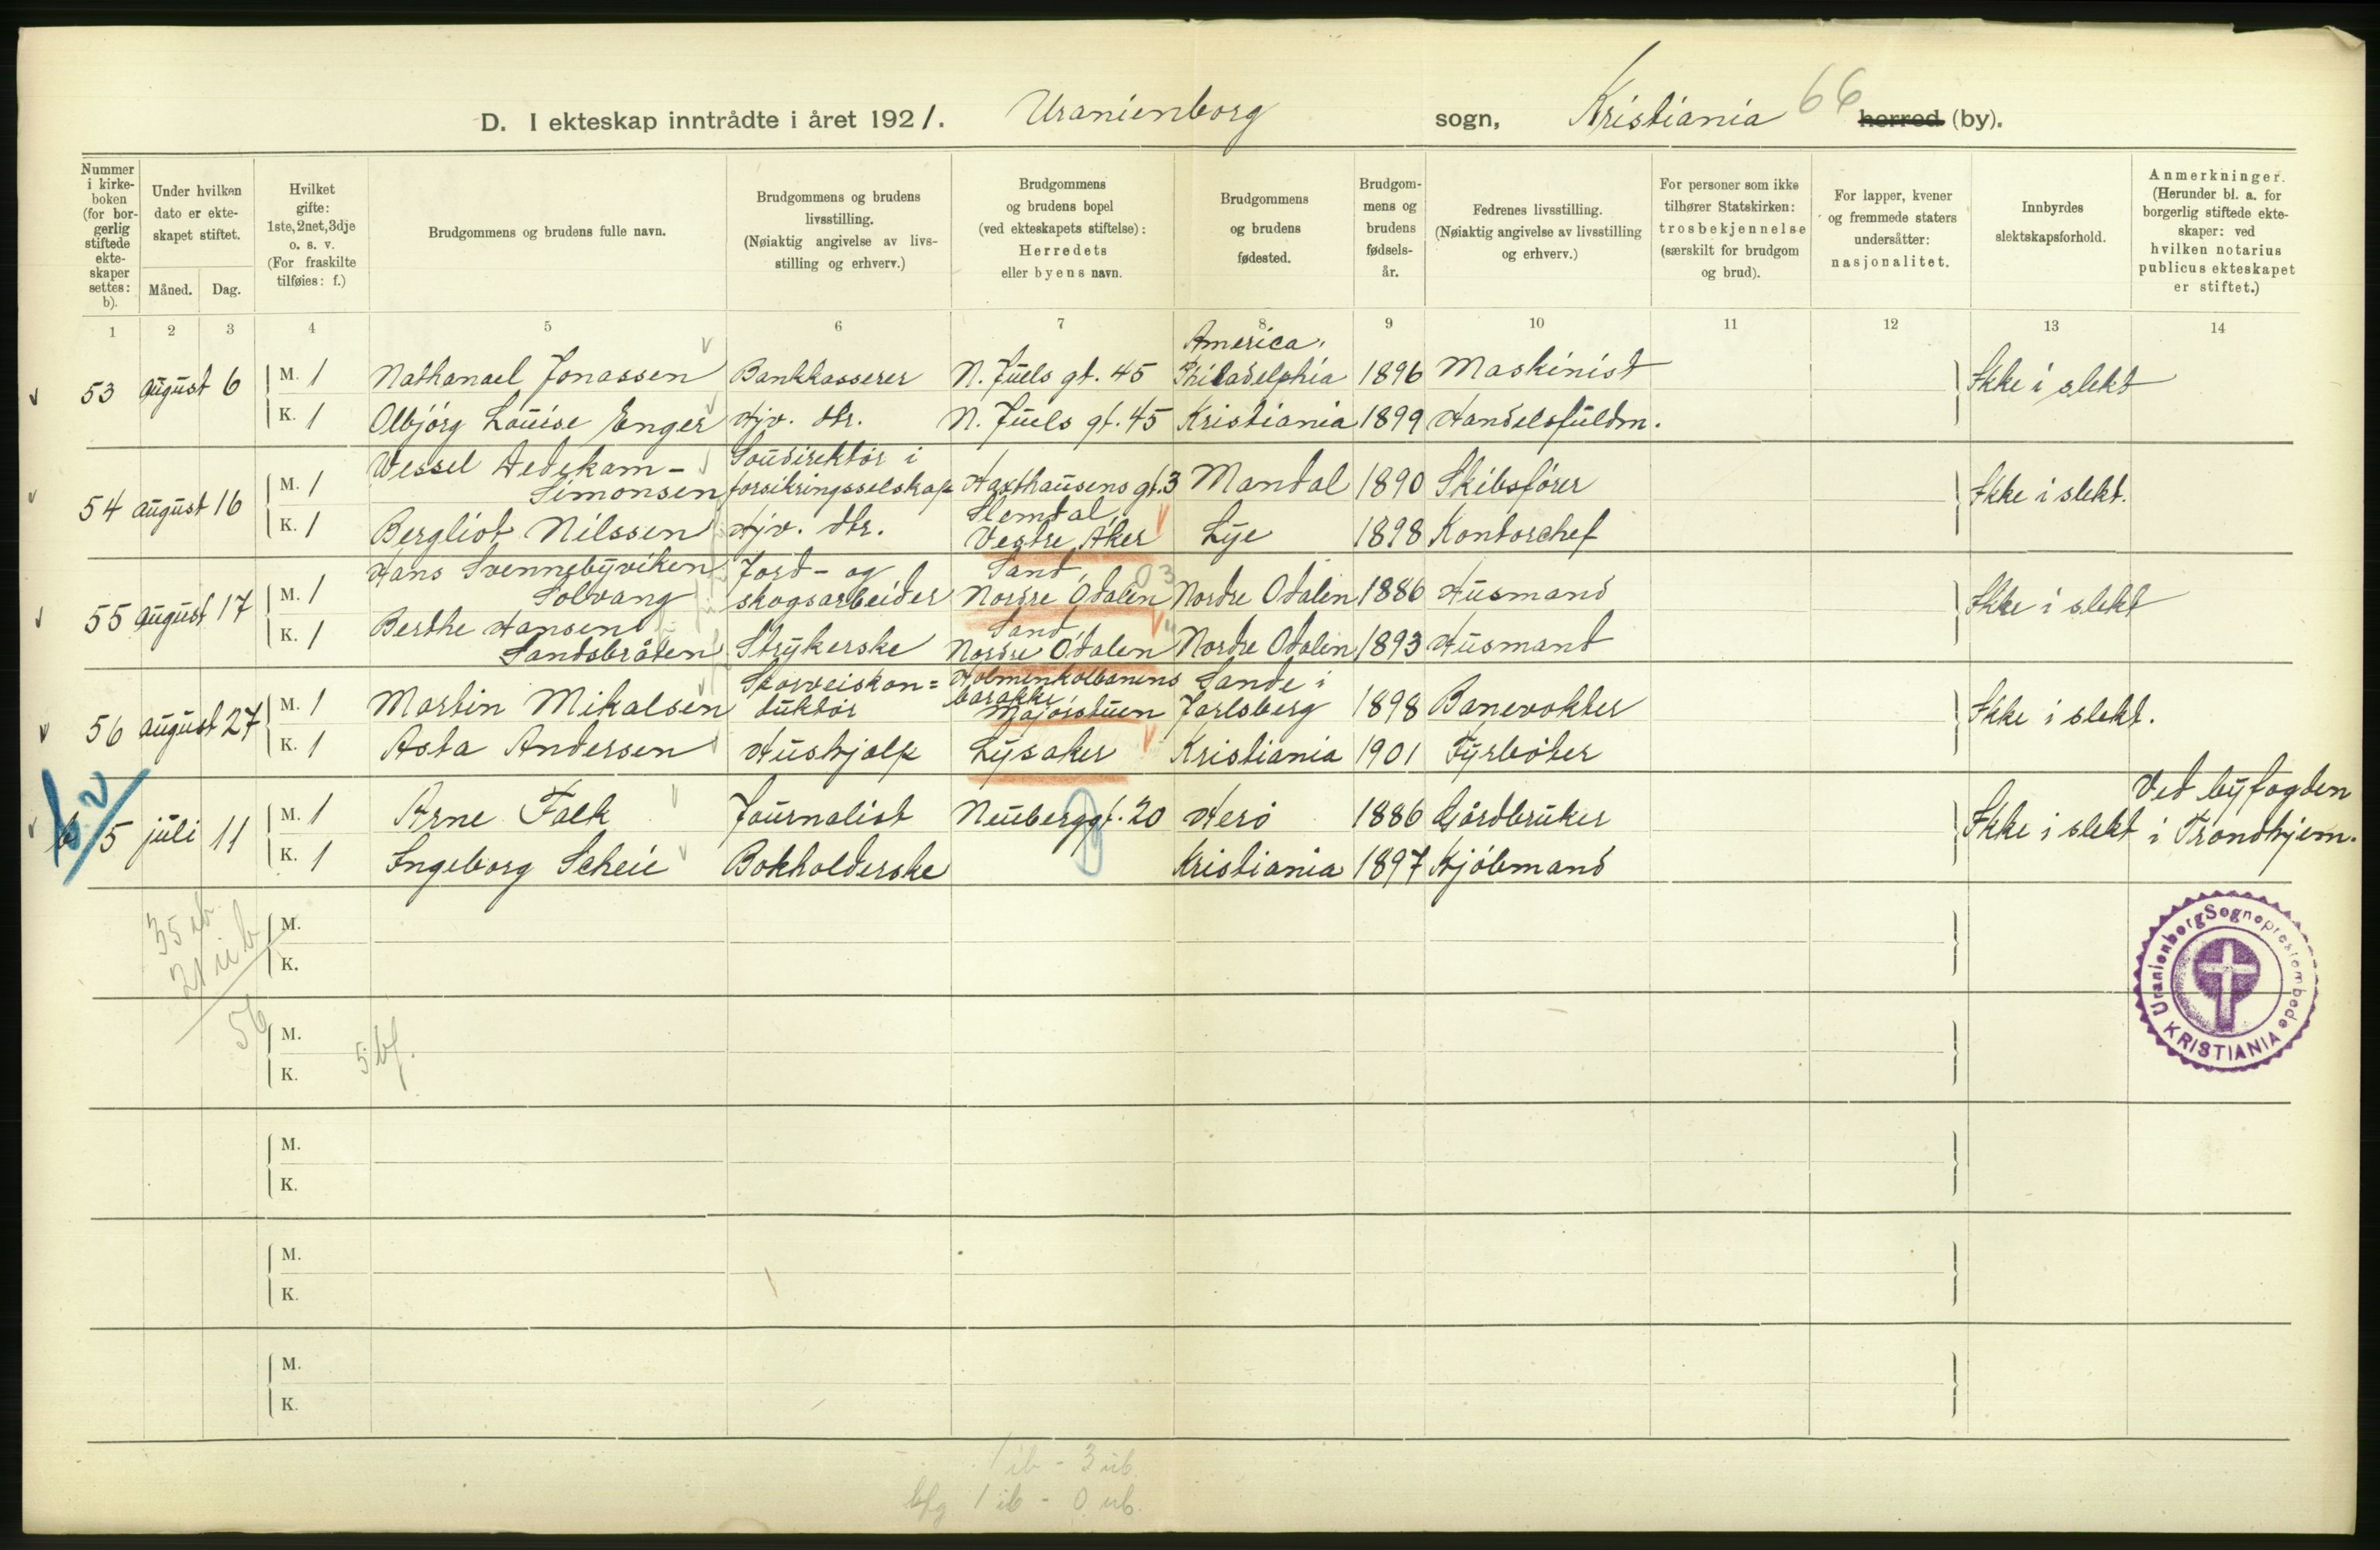 D. I ekteskap inntrådte i året 1921. Uranienborg sogn, Kristiania 66 herred (by).
Nummer i kirkeboken (for borgerlig stiftede ekteskaper settes: b).
Under hvilken dato er ekteskapet stiftet.
Måned. Dag.
Hvilket gifte: 1ste, 2net, 3dje o. s. v. (For fraskilte tilføies: f.)
Brudgommens og brudens fulle navn.
Brudgommens og brudens livsstilling. (Nøiaktig angivelse av livsstilling og erhverv.)
Brudgommens og brudens bopel (ved ekteskapets stiftelse): Herredets eller byens navn.
Brudgommens og brudens fødested.
Brudgommens og brudens fødselsår.
Fedrenes livsstilling. (Nøiaktig angivelse av livsstilling og erhverv.)
For personer som ikke tilhører Statskirken: trosbekjennelse (særskilt for brudgom og brud).
For lapper, kvener og fremmede staters undersåtter: nasjonalitet.
Innbyrdes slektskapsforhold.
Anmerkninger. (Herunder bl. a. for borgerlig stiftede ekteskaper: ved hvilken notarius publicus ekteskapet er stiftet.)
1 2 3 4 5 6 7 8 9 10 11 12 13 14
53 august 6 M. 1 Nathanael Jonassen Bankkasserer N. Juels gt. 45 America, Philadelphia 1896 Maskinist Ikke i slekt
K. 1 Olbjörg Louise Enger Hjv. dtr. N. Juels gt. 45 Kristiania 1899 Handelsfuldm.
54 august 16 M. 1 Wessel Dedekam-Simonsen Soudirektör i forsikringsselskap Haxthausens gt. 3 Mandal 1890 Skibsförer Ikke i slekt.
K. 1 Bergliot Nilssen Hjv. dtr. Slemdal, Vestre Aker Lye 1898 Kontorchef
55 august 17 M. 1 Hans Svennebyviken Solvang Jord- og skogsarbeider Sand, Nordre Odalen 03 Nordre Odalen 1886 Husmand Ikke i slekt
K. 1 Berthe Hansen Sandsbråten Strykerske Sand, Nordre Odalen Nordre Odalen 1893 Husmand
56 august 27 M. 1 Martin Mikalsen Sporveiskonduktör Holmenkolbanens barakke Majorstuen Sande i Jarlsberg 1898 Banevokter Ikke i slekt.
K. 1 Asta Andersen Hushjelp Lysaker Kristiania 1901 Fyrböter
b 5 juli 11 M. 1 Arne Falk Journalist Neuberggt. 20 Herö 1886 Gårdbruker Ikke i slekt Ved byfogden i Trondhjem.
K. 1 Ingeborg Scheie Bokholderske Kristiania 1897 Kjöbmand
35 ib
21 ub
56
M.
K.
5 bf.
M.
K.
M.
K.
M.
K.
M.
K.
Uranienborg Sogneprestembede KRISTIANIA
1 ib - 3 ub.
bfg 1 ib - 0 ub.